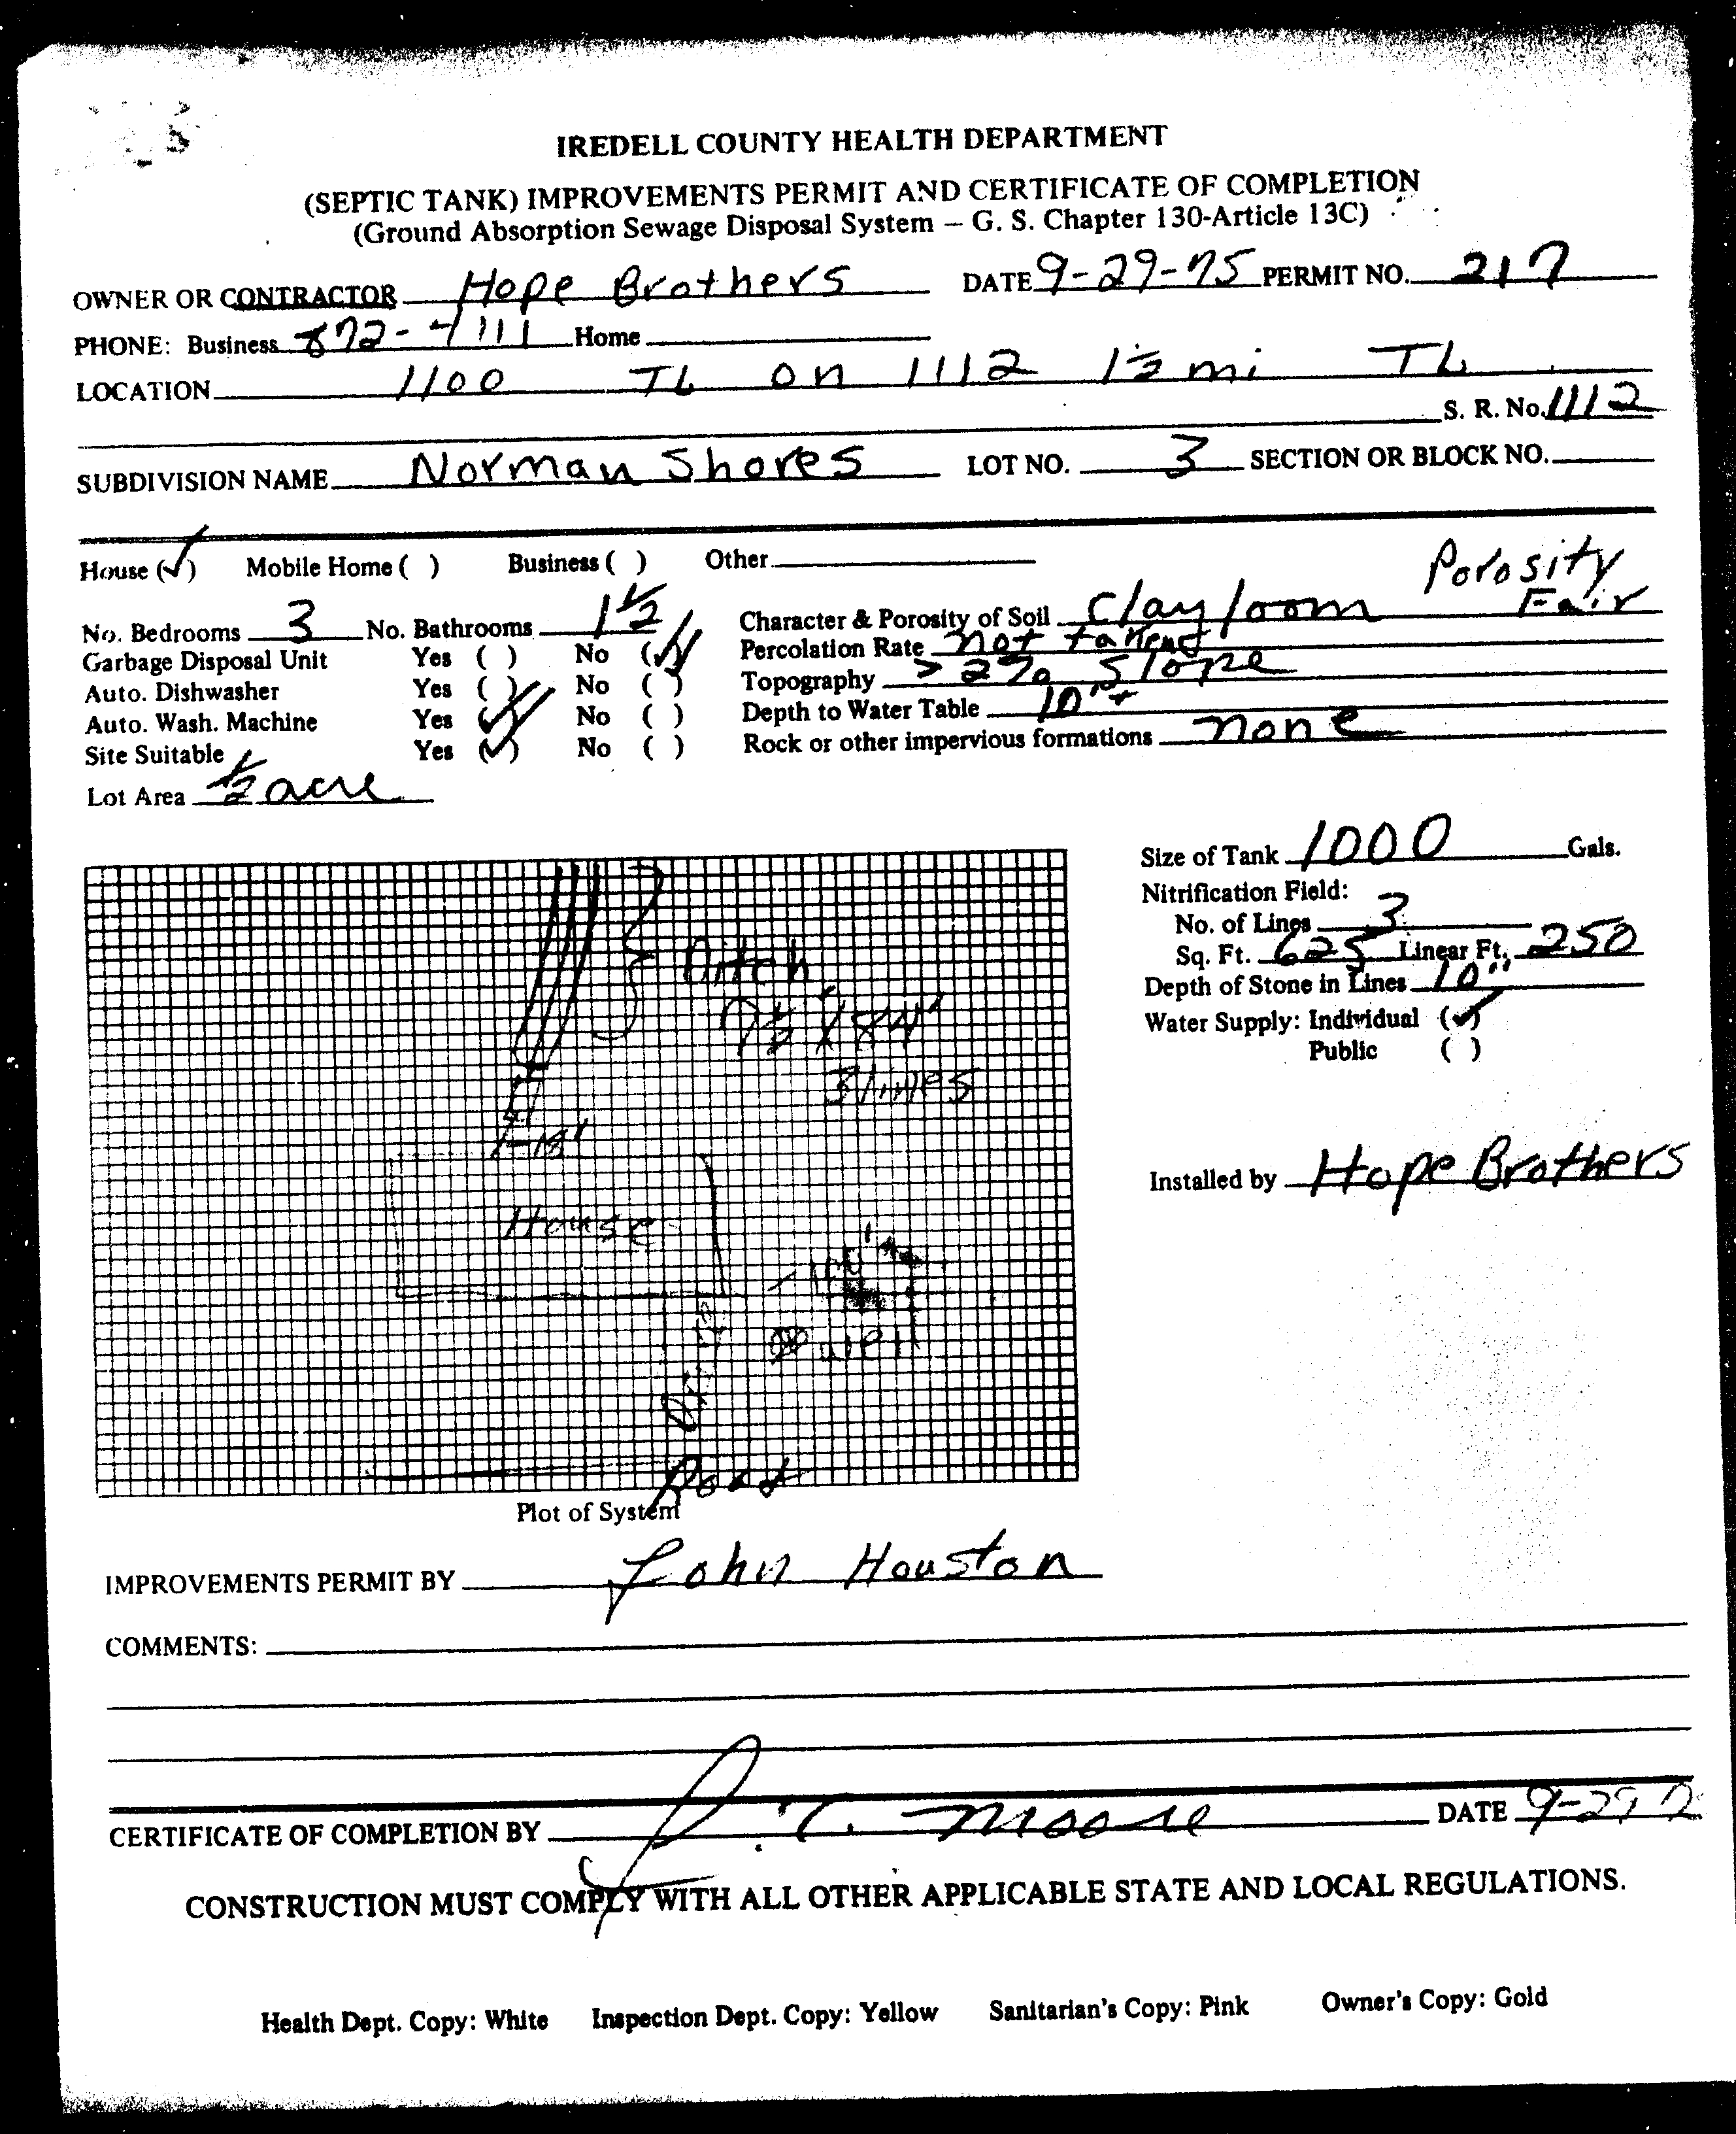 IREDELL COUNTY HEALTH DEPARTMENT
(SEPTIC TANK) IMPROVEMENTS PERMIT AND CERTIFICATE OF COMPLETION
(Ground Absorption Sewage Disposal System – G. S. Chapter 130-Article 13C)
OWNER OR CONTRACTOR Hope Brothers DATE 9-29-75 PERMIT NO. 217
PHONE: Business 872-4111 Home
LOCATION 1100 TL on 1112 1½ mi TL
S. R. No. 1112
SUBDIVISION NAME Norman Shores LOT NO. 3 SECTION OR BLOCK NO.
House (✓) Mobile Home ( ) Business ( ) Other
Porosity
No. Bedrooms 3 No. Bathrooms 1½ Character & Porosity of Soil Clay loom Fair
Garbage Disposal Unit Yes ( ) No (✓) Percolation Rate not taken
Auto. Dishwasher Yes ( ) No ( ) Topography > 2% Slope
Auto. Wash. Machine Yes (✓) No ( ) Depth to Water Table 10'+
Site Suitable Yes (✓) No ( ) Rock or other impervious formations none
Lot Area ½ acre
Size of Tank 1000 Gals.
Nitrification Field:
No. of Lines 3
Sq. Ft. 625 Linear Ft. 250
Depth of Stone in Lines 10"
Water Supply: Individual (✓)
Public ( )
Installed by Hope Brothers
Ditch
84'
3 lines
House
Well
Drive
Road
Plot of System
IMPROVEMENTS PERMIT BY John Houston
COMMENTS:
CERTIFICATE OF COMPLETION BY J. T. Moore DATE 9-29
CONSTRUCTION MUST COMPLY WITH ALL OTHER APPLICABLE STATE AND LOCAL REGULATIONS.
Health Dept. Copy: White Inspection Dept. Copy: Yellow Sanitarian's Copy: Pink Owner's Copy: Gold